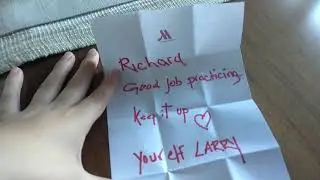 Richard
Good job practicing.
Keep it up ♡
Yourself LARRY